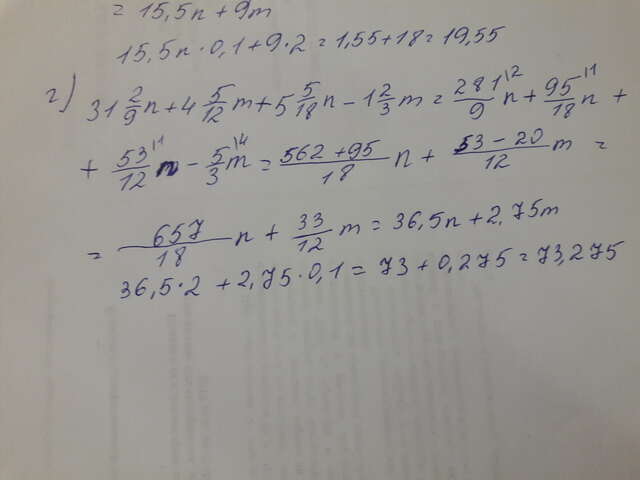 = 15,5n + 9m
15,5n · 0,1 + 9,2 = 1,55 + 18 = 19,55
г) 31 2/9 n + 4 5/12 m + 5 5/18 n - 1 2/3 m = 281\2/9 n + 95\1/18 n +
+ 53\1/12 m - 5\4/3 m = 562 + 95/18 n + 53 - 20/12 m =
= 657/18 n + 33/12 m = 36,5n + 2,75m
36,5 · 2 + 2,75 · 0,1 = 73 + 0,275 = 73,275